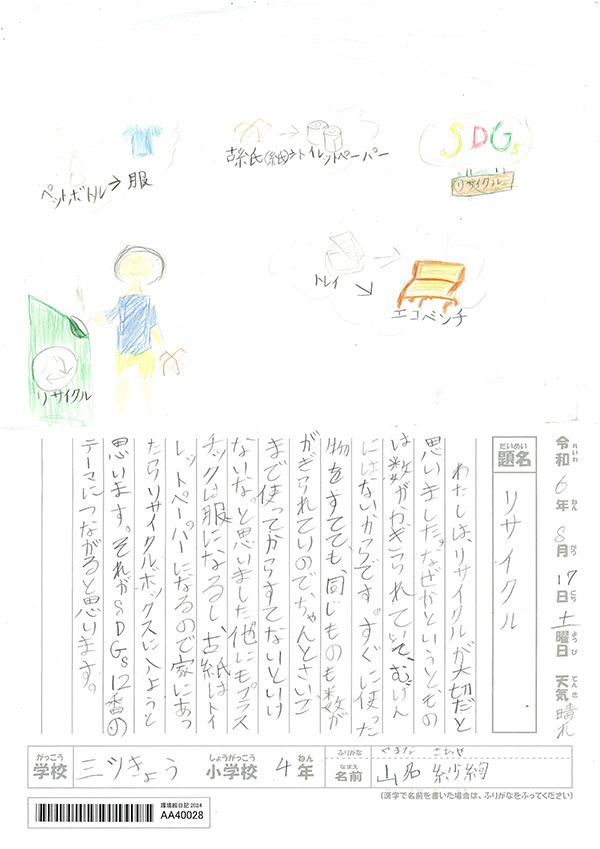 ペットボトル→服
古紙(紙)→トイレットペーパー
SDGs
リサイクル
トレイ
エコベンチ
リサイクル
令和6年8月17日土曜日 天気 晴れ
れいわ ねん がつ にち ようび てんき
だいめい
題名 リサイクル
わたしは、リサイクルが大切だと
思いました。なぜかというともの
は数がかぎられていて、むげん
にはないからです。すぐに使った
物をすてても、同じものも数が
かぎられていのでちゃんとさいご
まで使ってからすてないといけ
ないな。と思いました他にもプラス
チックは服になるし、古紙はトイ
レットペーパーになるので家にあっ
たらリサイクルボックスに入ようと
思います。それがSDGs12番の
テーマにつながると思います。
がっこう しょうがっこう ねん ふりがな
学校 三ツきょう 小学校 4年
なまえ
名前 山名 紗絢
(漢字で名前を書いた場合は、ふりがなをふってください)
環境絵日記2024
AA40028